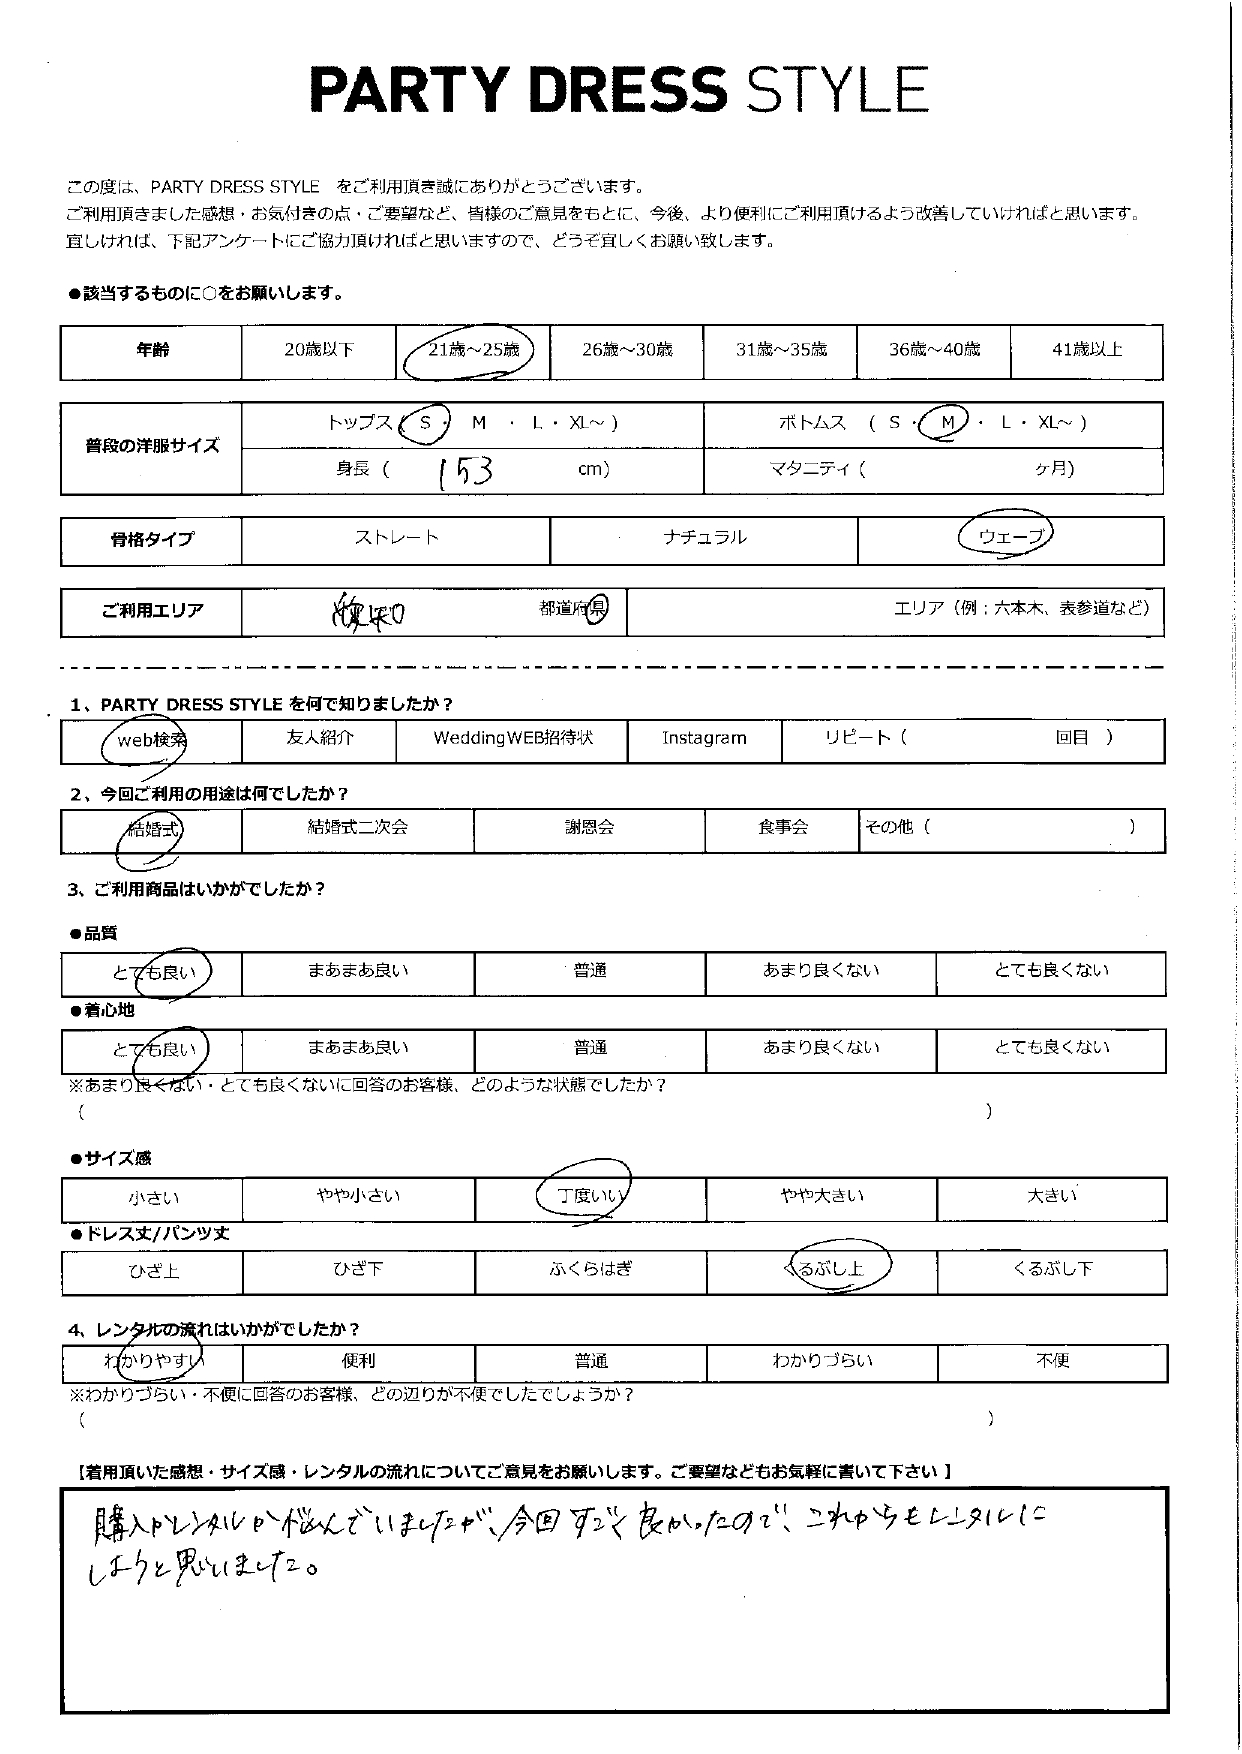 PARTY DRESS STYLE
この度は、PARTY DRESS STYLE をご利用頂き誠にありがとうございます。
ご利用頂きました感想・お気付きの点・ご要望など、皆様のご意見をもとに、今後、より便利にご利用頂けるよう改善していければと思います。
宜しければ、下記アンケートにご協力頂ければと思いますので、どうぞ宜しくお願い致します。
●該当するものに○をお願いします。
年齢 20歳以下 21歳～25歳 26歳～30歳 31歳～35歳 36歳～40歳 41歳以上
普段の洋服サイズ
トップス ( S ・ M ・ L ・ XL～ ) ボトムス ( S ・ M ・ L ・ XL～ )
身長 ( 153 cm) マタニティ ( ヶ月)
骨格タイプ ストレート ナチュラル ウェーブ
ご利用エリア 愛知 都道府県 エリア（例；六本木、表参道など）
1、PARTY DRESS STYLE を何で知りましたか？
web検索 友人紹介 WeddingWEB招待状 Instagram リピート（ 回目 ）
2、今回ご利用の用途は何でしたか？
結婚式 結婚式二次会 謝恩会 食事会 その他（ ）
3、ご利用商品はいかがでしたか？
●品質
とても良い まあまあ良い 普通 あまり良くない とても良くない
●着心地
とても良い まあまあ良い 普通 あまり良くない とても良くない
※あまり良くない・とても良くないに回答のお客様、どのような状態でしたか？
（ ）
●サイズ感
小さい やや小さい 丁度いい やや大きい 大きい
●ドレス丈/パンツ丈
ひざ上 ひざ下 ふくらはぎ くるぶし上 くるぶし下
4、レンタルの流れはいかがでしたか？
わかりやすい 便利 普通 わかりづらい 不便
※わかりづらい・不便に回答のお客様、どの辺りが不便でしたでしょうか？
（ ）
【着用頂いた感想・サイズ感・レンタルの流れについてご意見をお願いします。ご要望などもお気軽に書いて下さい 】
購入かレンタルか悩んでいましたが、今回すごく良かったので、これからもレンタルに
しようと思いました。